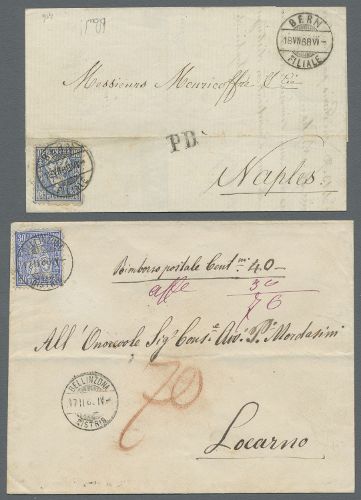 BERN
18 VII 68 VI-
FILIALE
Messieurs Meuricoffre & Cie
P.D.
Naples.
30
Rimborso postale Centmi 40
affr 30
70
All' Onorevole Sigr Conse Avv.
BELLINZONA
17 II 6 IV-
DISTRIB
70
Locarno